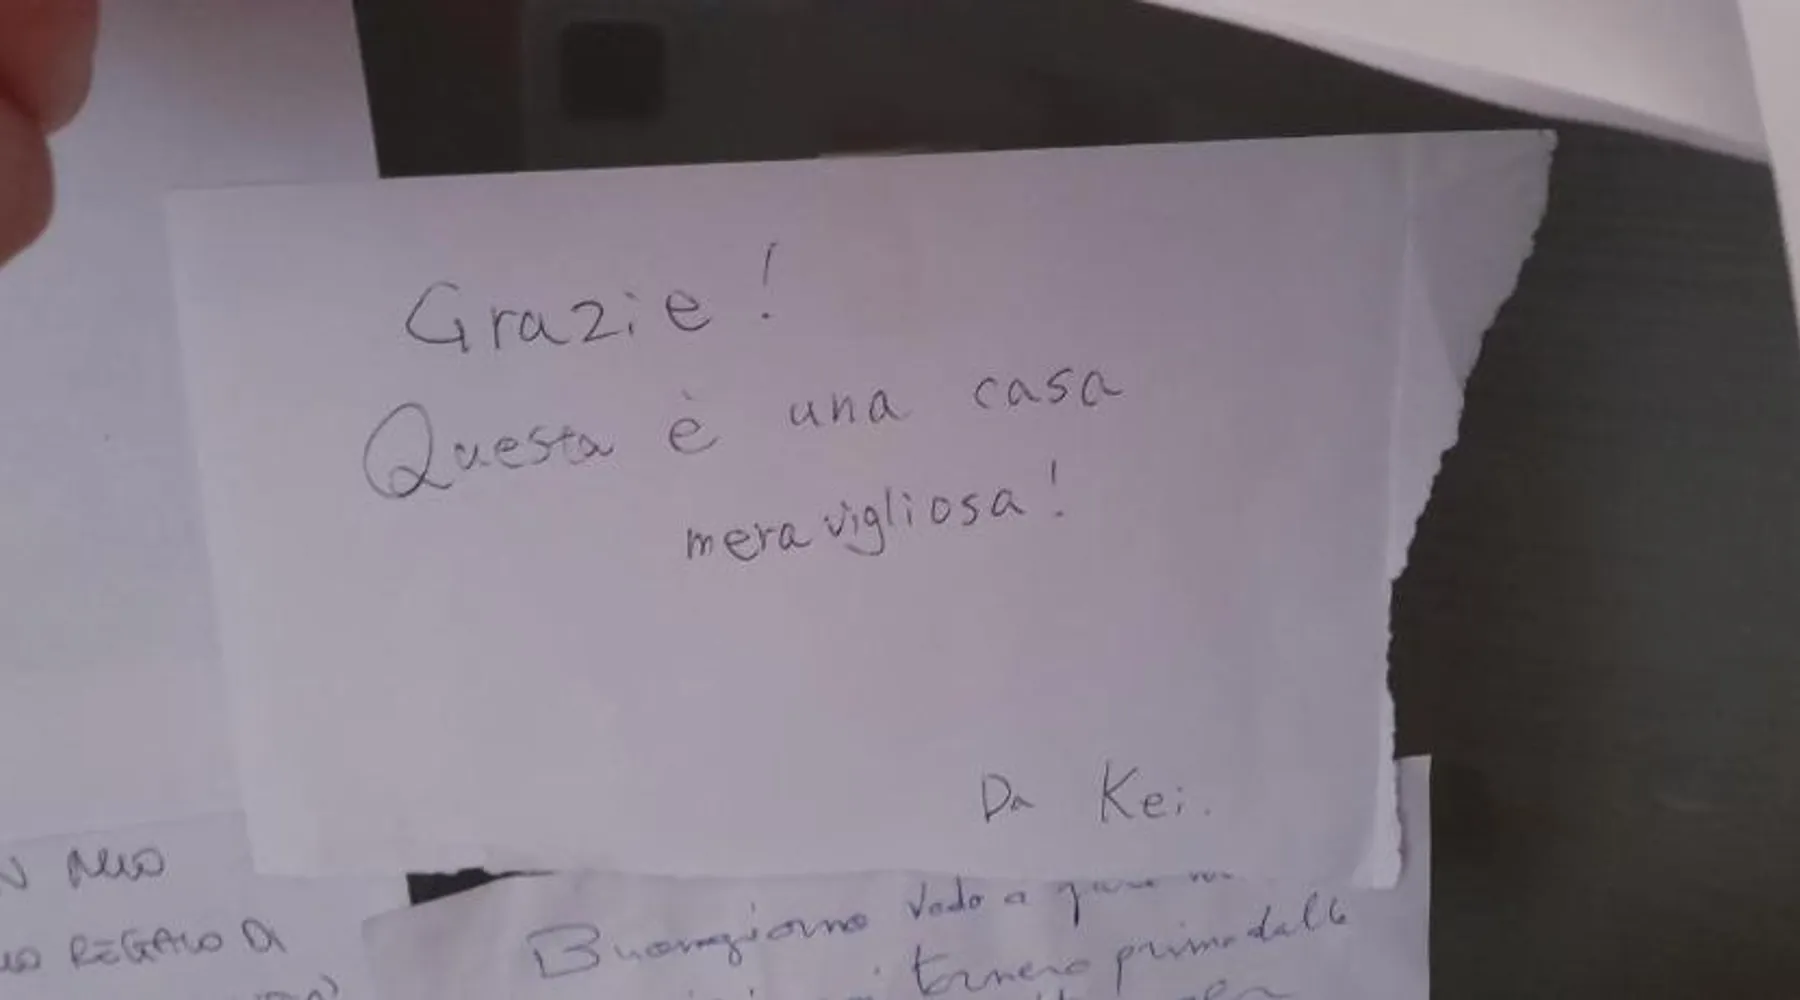 Grazie!
Questa è una casa
meravigliosa!
Da Kei.
REGALO DI
Buongiorno Vado a
tornerò prima dalle